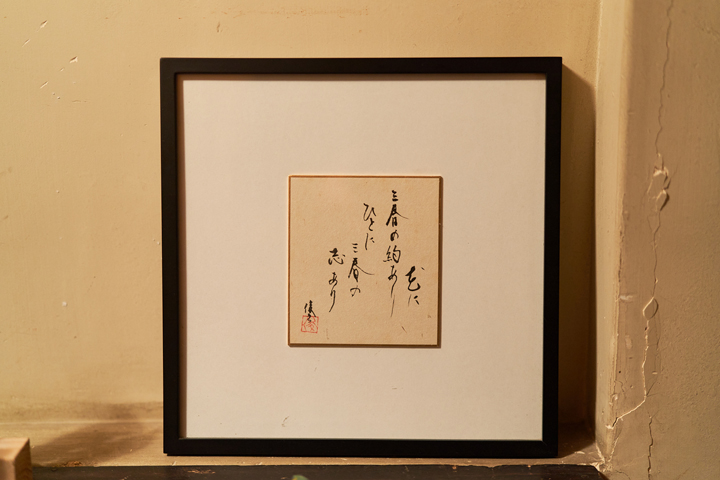 花に
三春の約あり
ひとに
三春の
志あり